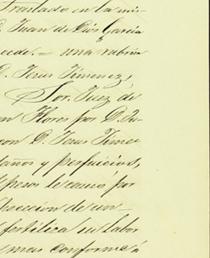 traslado en la mis-
D. Juan de Dios Garcia
cede.— una rubrica
D. Jesus Jimenez,
Sor. Juez de
n Flores por D. Ju-
con D. Jesus Jime-
daños y perjuicios,
pesos le causó por
truccion de un
fortifica en labor
mas conforme á